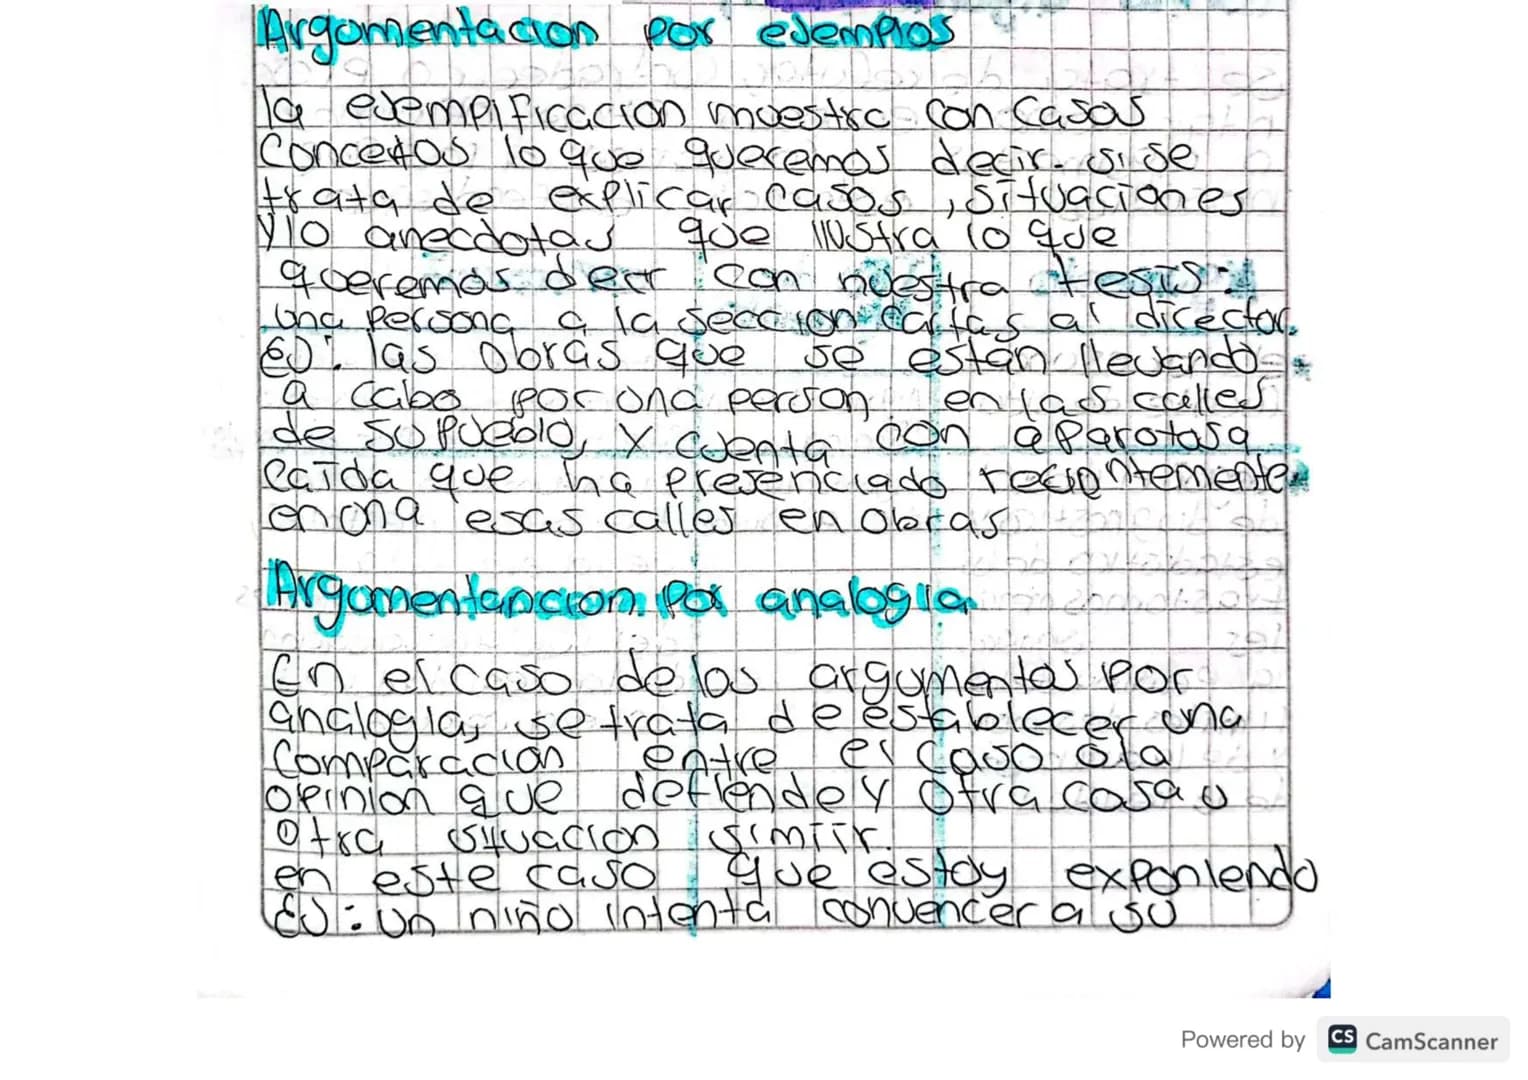 Argomentacion por ejemplos
la ejempificacion muestra con casos
concetos lo que queremos decir. si se
trata de explicar casos, situaciones
y/o anecdotas que ilustra lo que
queremos decir con nuestra tesis:
una persona a la seccion cartas al director.
Ej: las obras que se están llevando
a cabo por una person en las calles
de su pueblo, y cuenta con aparotasa
caída que ha presenciado recientemente
en una esas calles en obras
Argomentancion por analogia
En el caso de los argumentos por
analogia, se trata de establecer una
comparacion entre el caso o la
opinion que defiende y otra cosa u
otra situacion simiir.
en este caso que estoy exponiendo
Ej: un niño intenta convencer a su
Powered by CS CamScanner